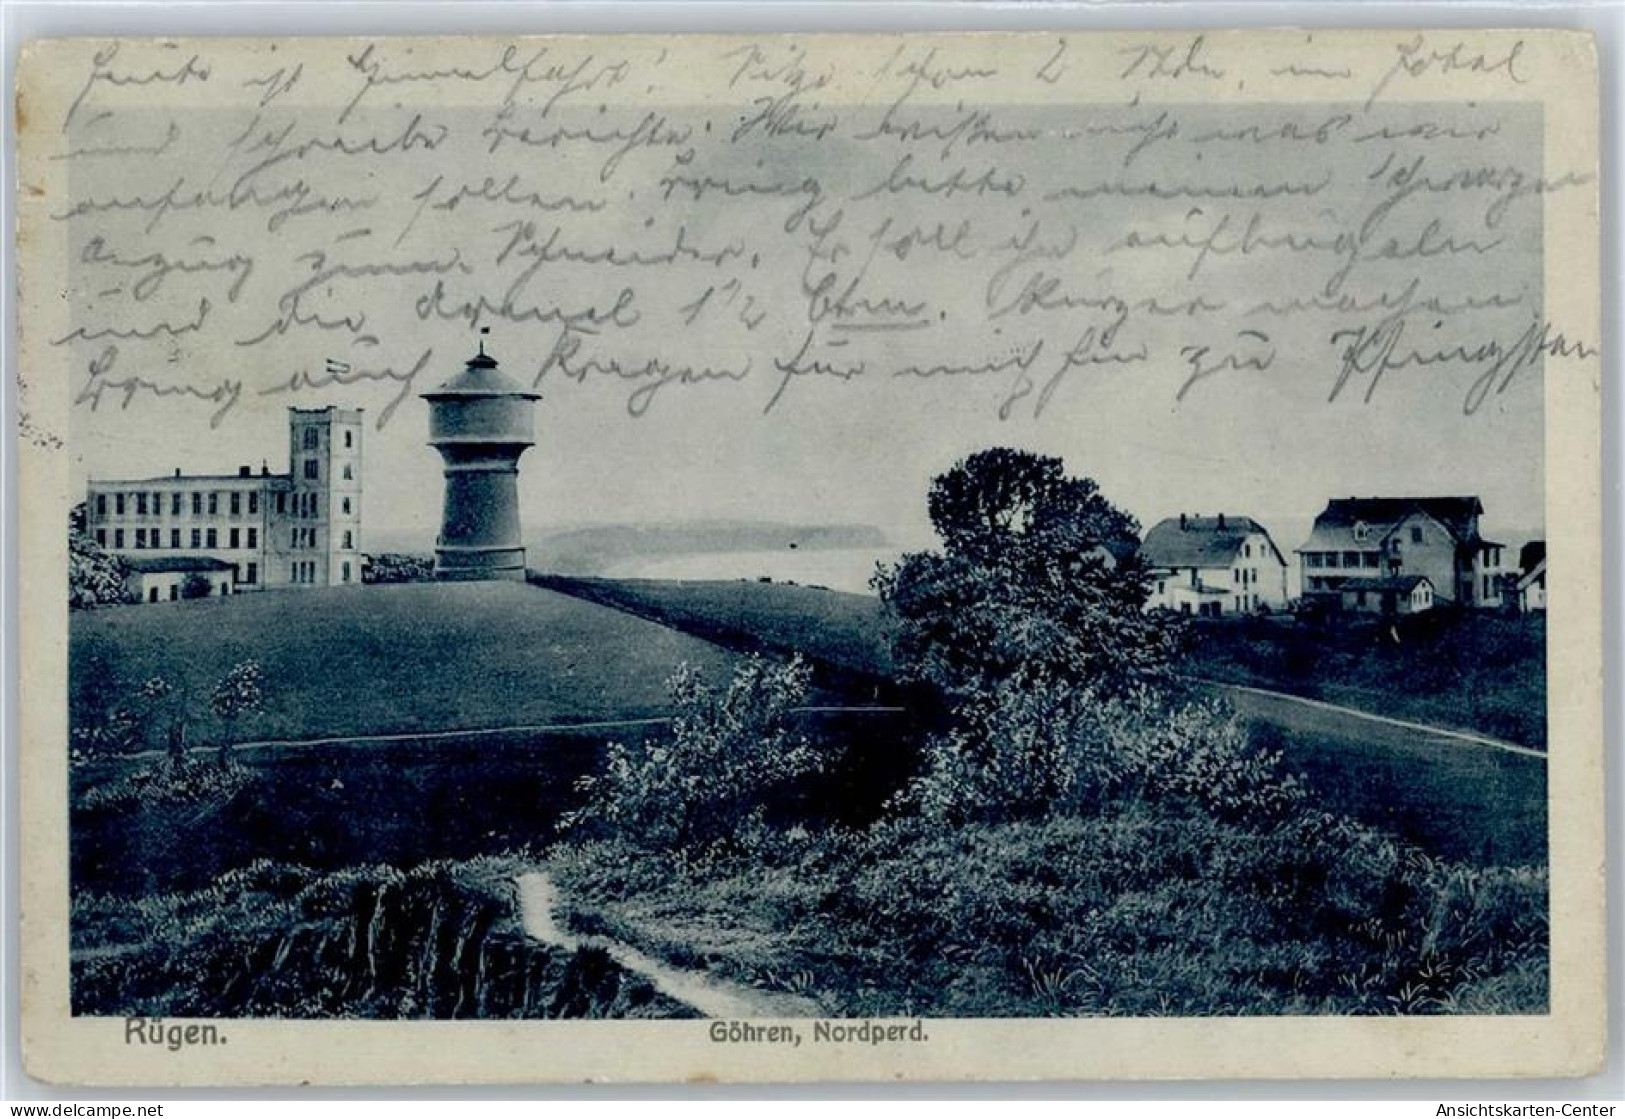 Heute ist Himmelfahrt! Sitze schon 2 Stdn. im Lokal
und schreibe Berichte. Wir wißen nicht was wir
anfangen sollen. Bring bitte meinen schwarzen
Anzug zum Schneider. Er soll ihn aufbügeln
und die Ärmel 1 1/2 Ctm. kürzer machen
Bring auch Kragen für mich hin zu Pfingsten
Rügen.
Göhren, Nordperd.
www.delcampe.net
Ansichtskarten-Center